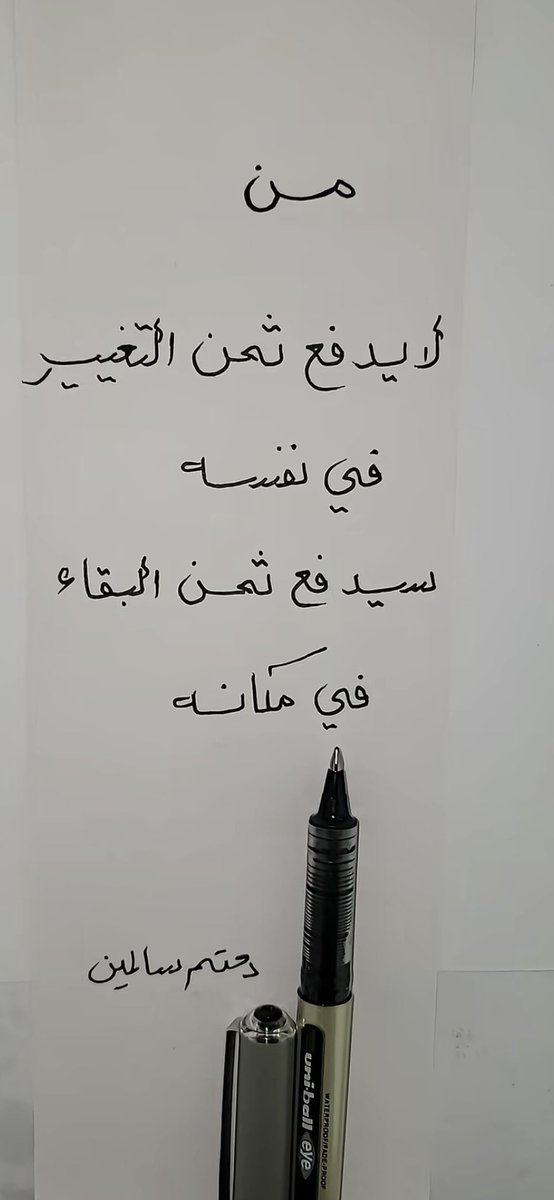 من
لا يدفع ثمن التغيير
في نفسه
سيدفع ثمن البقاء
في مكانه
دمتم سالمين
uni-ball eye
WATERPROOF/FADE-PROOF